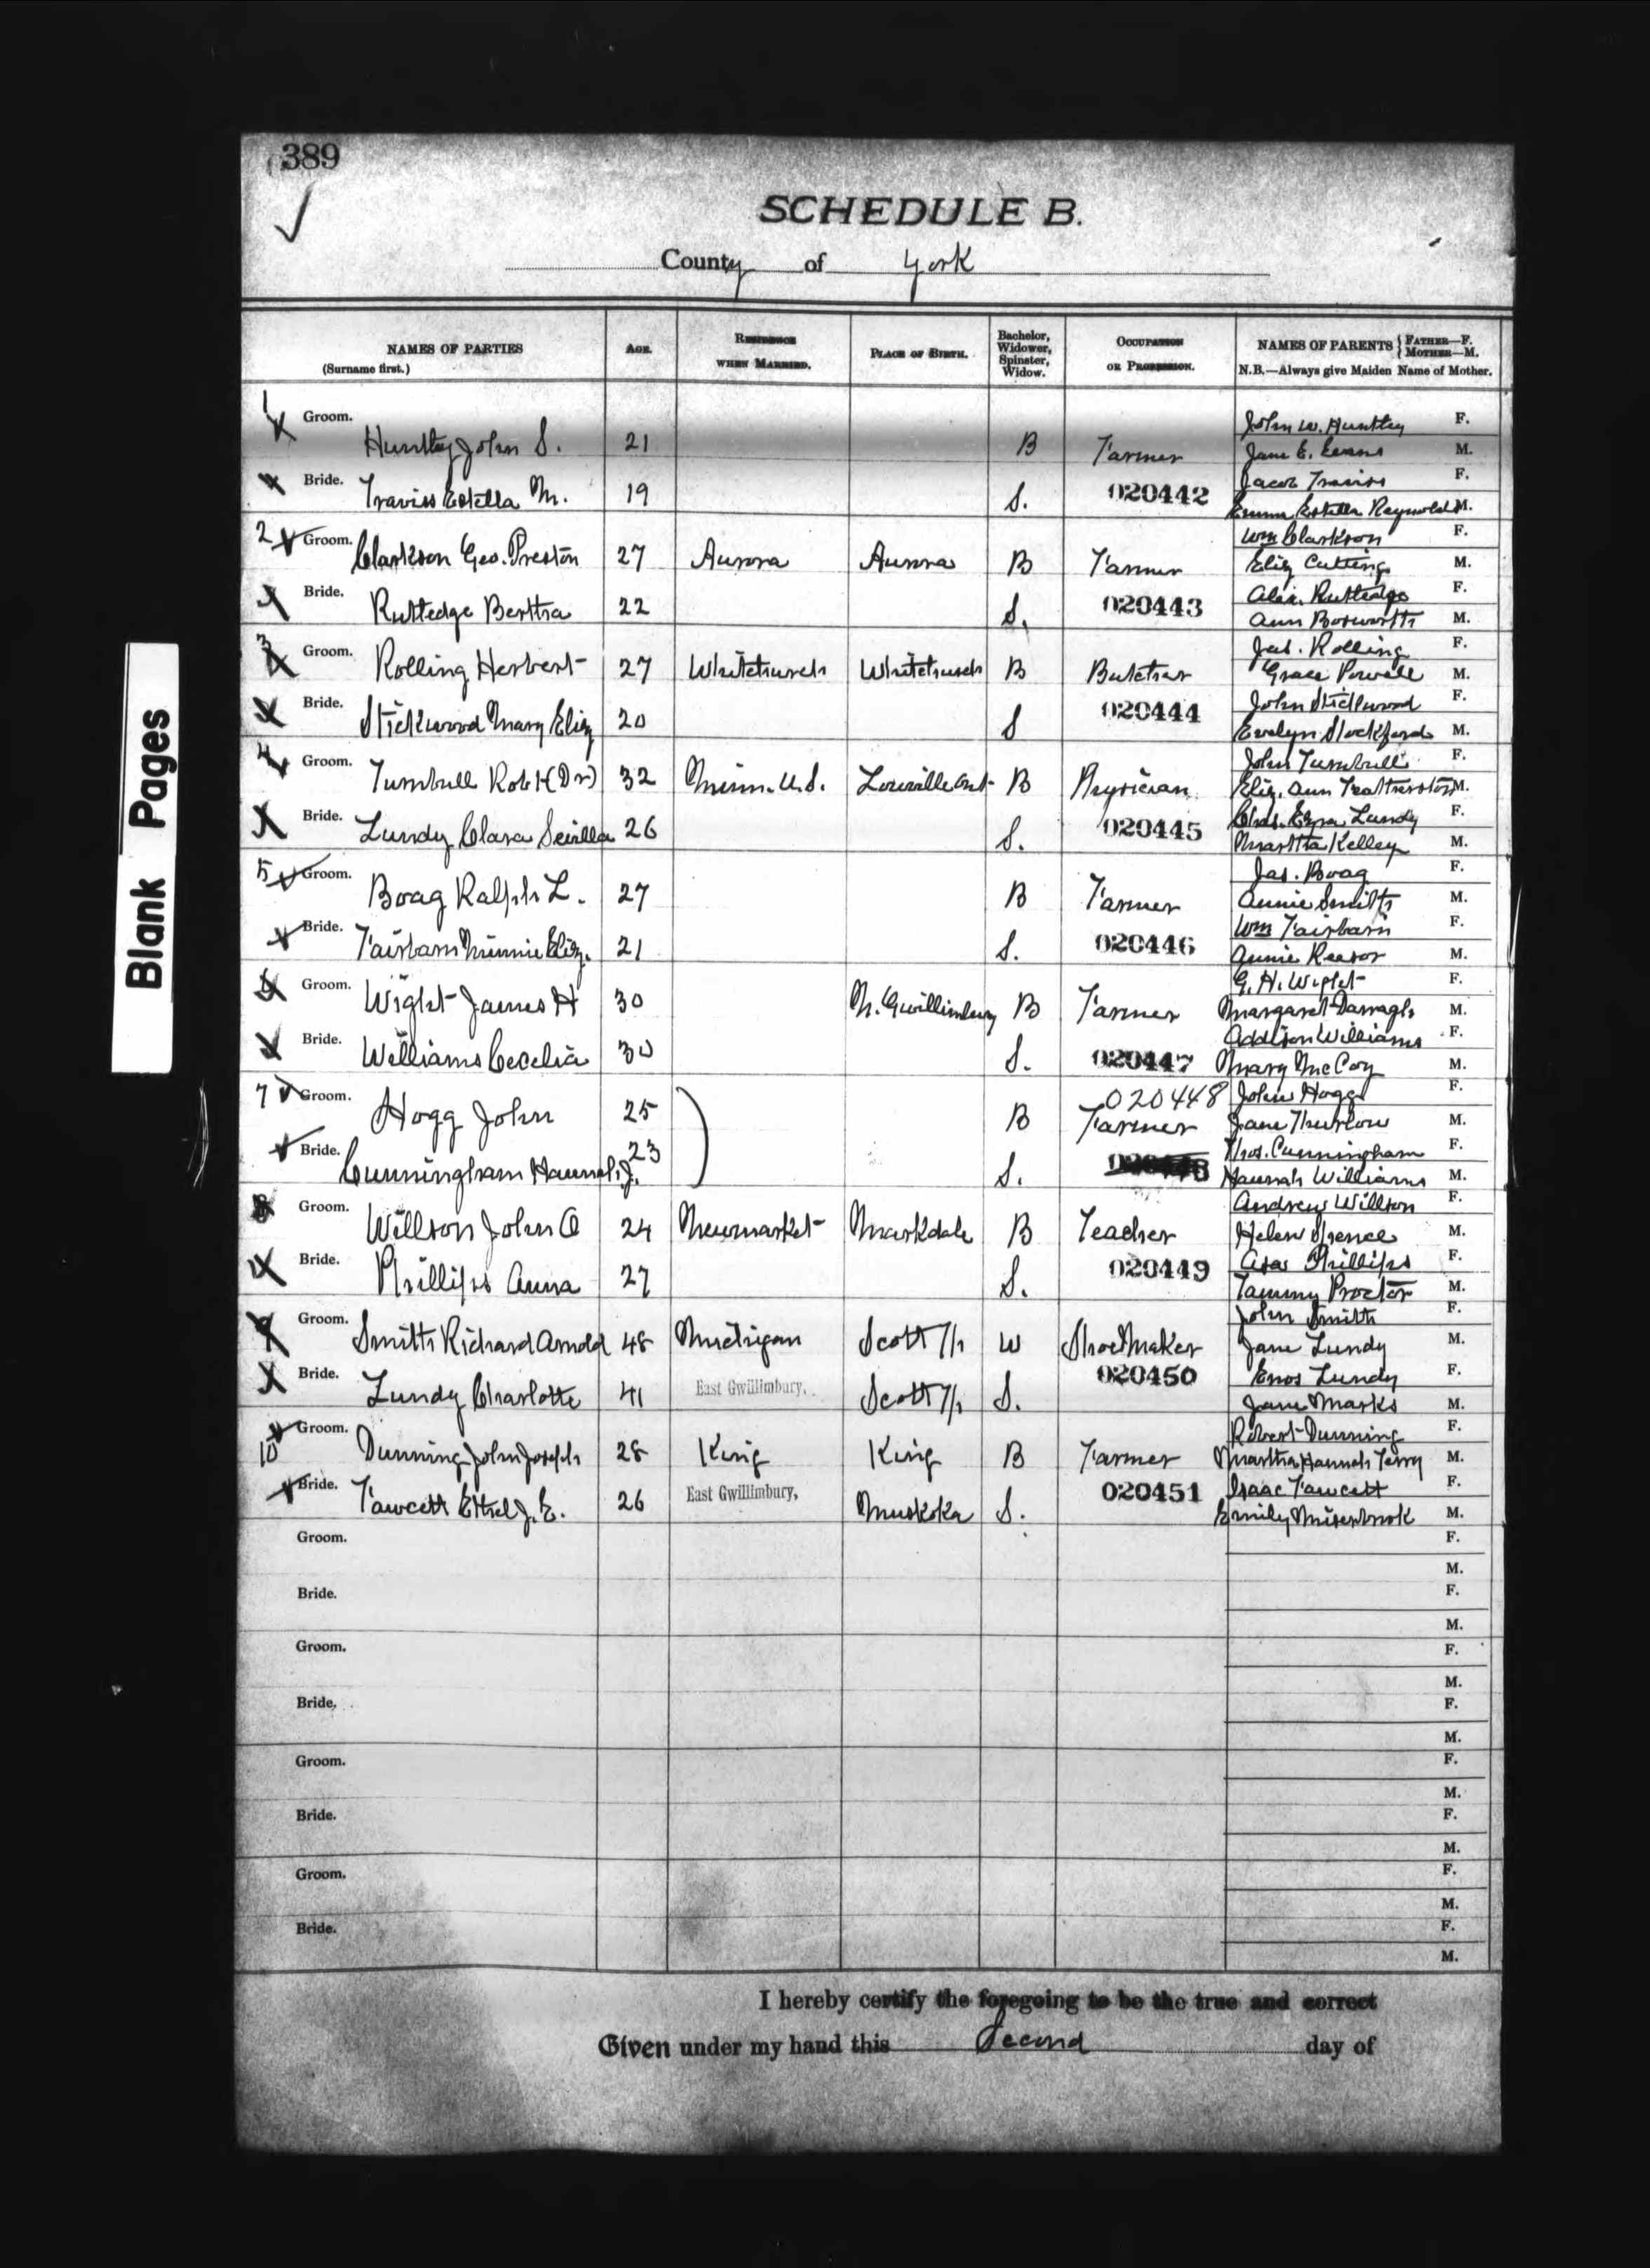 389
SCHEDULE B.
County of York
NAMES OF PARTIES
(Surname first.)
AGE.
RESIDENCE
WHEN MARRIED.
PLACE OF BIRTH.
Bachelor,
Widower,
Spinster,
Widow.
OCCUPATION
OR PROFESSION.
NAMES OF PARENTS { FATHER—F.
MOTHER—M.
N.B.—Always give Maiden Name of Mother.
1 Groom. Huntley John S. 21 B Farmer John W. Huntley F.
Jane E. Evans M.
Bride. Traviss Estella M. 19 S. 020442 Jacob Traviss F.
Emma Estella Reynolds M.
2 Groom. Clarkson Geo. Preston 27 Aurora Aurora B Farmer Wm Clarkson F.
Eliz Cutting M.
Bride. Rutledge Bertha 22 S. 020443 Alex. Rutledge F.
Ann Bosworth M.
3 Groom. Rolling Herbert 27 Whitchurch Whitchurch B Butcher Jas. Rolling F.
Grace Powell M.
Bride. Stickwood Mary Eliz 20 S 020444 John Stickwood F.
Evelyn Stockford M.
4 Groom. Turnbull Robt (Dr) 32 Minn. U.S. Ont B Physician John Turnbull F.
Eliz. Ann M.
Bride. Lundy Clara 26 S. 020445 Chas. Ezra Lundy F.
Martha Kelley M.
5 Groom. Boag Ralph L. 27 B Farmer Jas. Boag F.
Annie Smith M.
Bride. Fairbarn Minnie Eliz. 21 S. 020446 Wm Fairbarn F.
Annie Reasor M.
6 Groom. Wight James H 30 N. Gwillimbury B Farmer G. H. Wight F.
Margaret Darragh M.
Bride. Williams Cecelia 30 S. 020447 Addison Williams F.
Mary McCoy M.
7 Groom. Hogg John 25 B 020448 Farmer John Hogg F.
Jane Thurlow M.
Bride. Cunningham Hannah J. 23 S. Thos. Cunningham F.
Hannah Williams M.
8 Groom. Willson John O 24 Newmarket Markdale B Teacher Andrew Willson F.
Helen Spence M.
Bride. Phillips Anna 27 S. 020449 Asa Phillips F.
Tammy Proctor M.
9 Groom. Smith Richard Arnold 48 Michigan Scott Tp W Shoe Maker John Smith F.
Jane Lundy M.
Bride. Lundy Charlotte 41 East Gwillimbury. Scott Tp S. 020450 Enos Lundy F.
Jane Marks M.
10 Groom. Dunning John Joseph 28 King King B Farmer Robert Dunning F.
Martha Hannah Terry M.
Bride. Fawcett Ethel J. E. 26 East Gwillimbury, Muskoka S. 020451 Isaac Fawcett F.
Emily Misenbrook M.
Groom. F.
M.
Bride. F.
M.
Groom. F.
M.
Bride. F.
M.
Groom. F.
M.
Bride. F.
M.
Groom. F.
M.
Bride. F.
M.
I hereby certify the foregoing to be the true and correct
Given under my hand this Second day of
Blank Pages